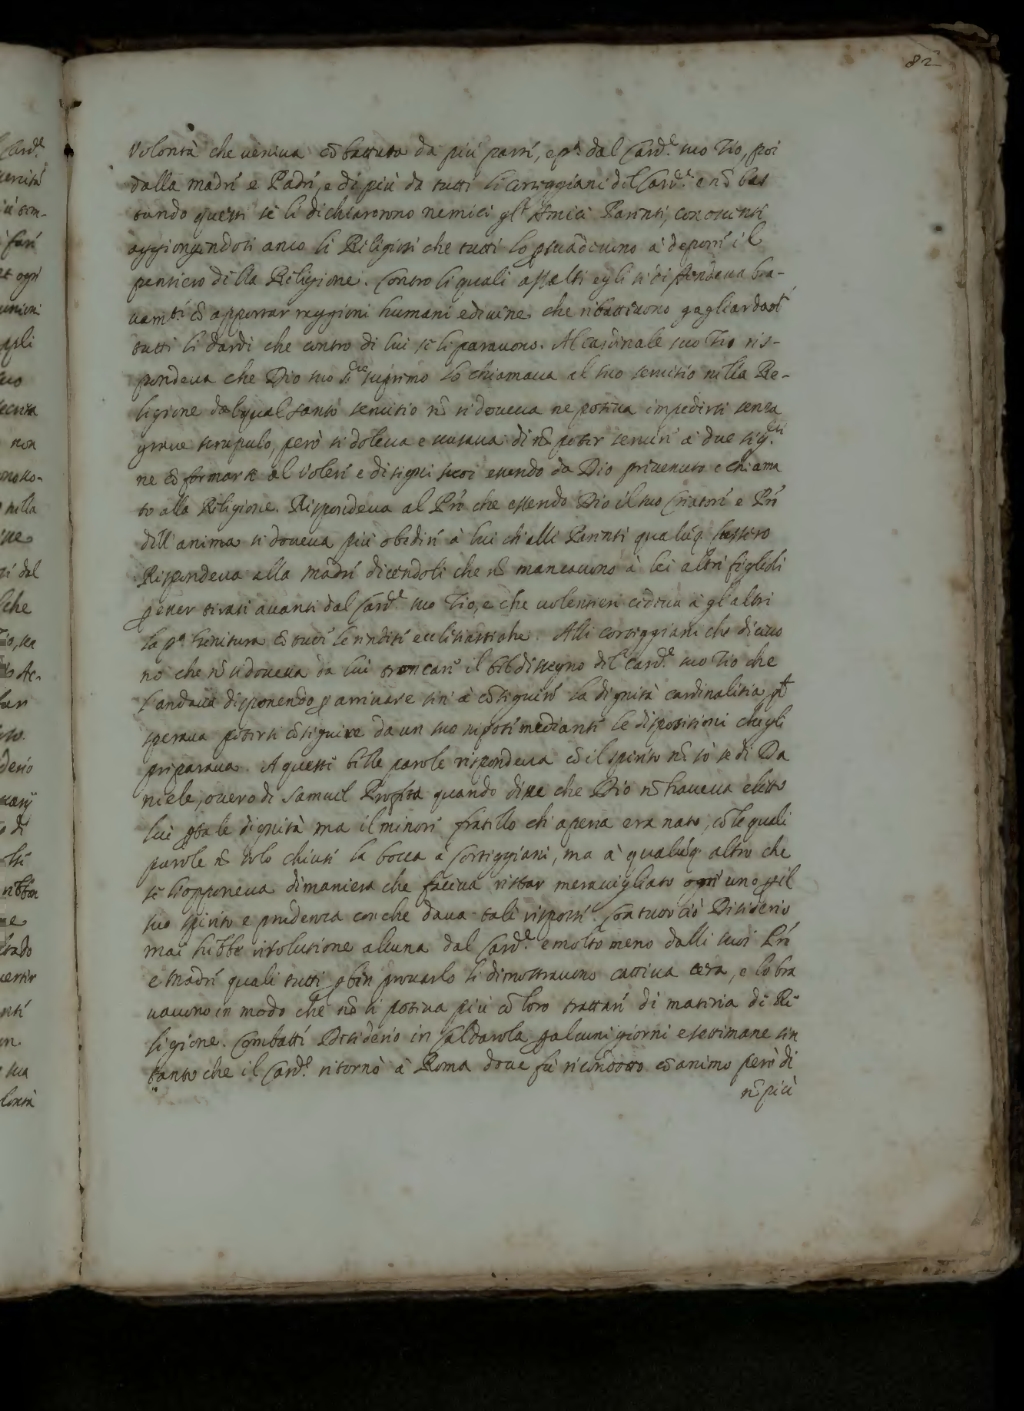 82
Volontà che veniva cō battuta da più parti, e pª dal Card.e suo Tio, poi
dalla madre e Padre, e di più da tutti li corteggiani del Card.e e nō bas
tando questi se li dichiarorono nemici gl' Amici Parenti, conoscenti
aggiongendoti anco li Religiosi che tutti lo psuadevano à deporre il
pensiero della Religione. Contro li quali assalti egli si difendeva bra-
vamte cō apportar raggioni humane e divine che ributtavono gagliardamt
tutti li dardi che contro di lui se li paravono. Al Cardinale suo Tio ris-
pondeva che Dio suo sre supremo lo chiamava al suo servitio nella Re-
ligione dal qual santo servitio nō si doveva ne poteva impedirsi senza
grave scrupulo, però si doleva e scusava di nō poter servire à due sig.ri
ne cō formarsi al volere e disegni suoi essendo da Dio prevenuto e chiama
to alla Religione. Rispondeva al Pre che essendo Dio il suo Creatore e Pre
dell' anima si doveva più obedire à lui ch' alli Parenti qualūq fussero
Rispondeva alla madre dicendoli che nō mancavono à lei altri figlioli
p esser tirati avanti dal Card.e suo Tio, e che volentieri cedeva à gl' altri
la pª genitura cō tutti le rendite ecclesiastiche. Alli corteggiani che diceva
no che nō si doveva da lui troncare il bel dissegno del Card.e suo Tio che
l' andava disponendo p arrivare sin' à cōseguire la dignità cardinalitia
sperava potersi cōseguire da un suo nipote mediante le dispositioni ch' egli
preparava. A queste belle parole rispondeva cō il spirito nō so se di Da
niele, overo di Samuel Profeta quando disse che Dio nō haveva eletto
lui p tale dignità ma il minore fratello ch' apena era nato, cō le quali
parole nō solo chiuse la bocca à Corteggiani, ma à qualūq altro che
se li opponeva di maniera che faceva restar meravigliato ogn' uno p il
suo spirito e prudenza con che dava tali risposte. Con tutto ciò Desiderio
mai hebbe risolutione alcuna dal Card.e e molto meno dalli suoi Pre
e Madre quali tutti p ben provarlo li dimostravono cattiva cera, e lo bra
vavono in modo che nō si poteva più cō loro trattare di materia di Re
ligione. Combatté Desiderio in Caldarola p alcuni giorni e settimane sin
tanto che il Card.e ritornò à Roma dove fù ricōdotto cō animo però di
nō più